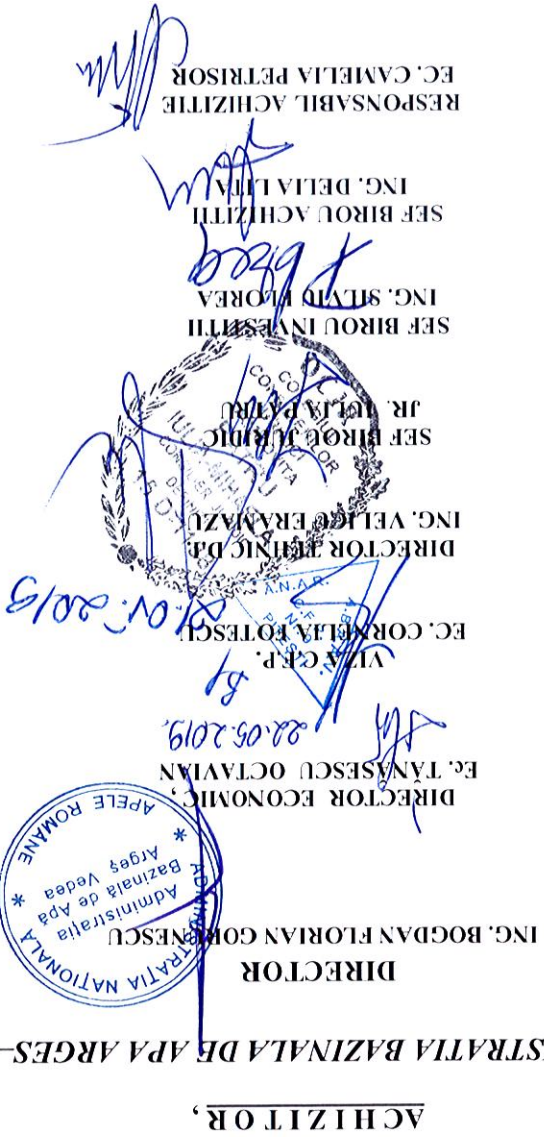 ACHIZITOR,
STRATIA BAZINALA DE APA ARGES–
DIRECTOR
ING. BOGDAN FLORIAN GORUNESCU
ADMINISTRAȚIA NAȚIONALĂ * APELE ROMÂNE *
Administrația
Bazinală de Apă
Argeș Vedea
DIRECTOR ECONOMIC,
Ec. TĂNĂSESCU OCTAVIAN
22.05.2019.
VIZA C.F.P.
EC. CORNELIA FOTESCU
A.N.A.R.
DIRECTOR TEHNIC D.I.
ING. VELIGU ERAMAZU
SEF BIROU JURIDIC
JR. IULIA PATRU
SEF BIROU INVESTITII
ING. SILVIU FLOREA
SEF BIROU ACHIZITII
ING. DELIA LITA
RESPONSABIL ACHIZITIE
EC. CAMELIA PETRISOR